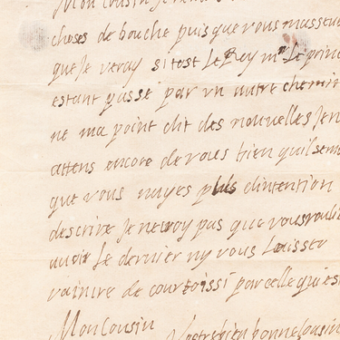 Mon Cousin
choses de bouche puis que vous masseu
que je veray si tost le Roy mr le prin
estant passé par vn autre chemin
ne ma point dit des nouvelles Jen
attens encore de vous bien quil sem
que vous nayes plus dintention
descrire Je ne croy pas que vous vouli
avoir le dernier ny vous laisser
vaincre de courtoissi par celle qui es
Mon Cousin Vostre bien bonne Cousin